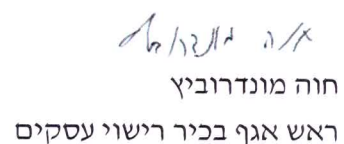 חוה מונדרוביץ
ראש אגף בכיר רישוי עסקים